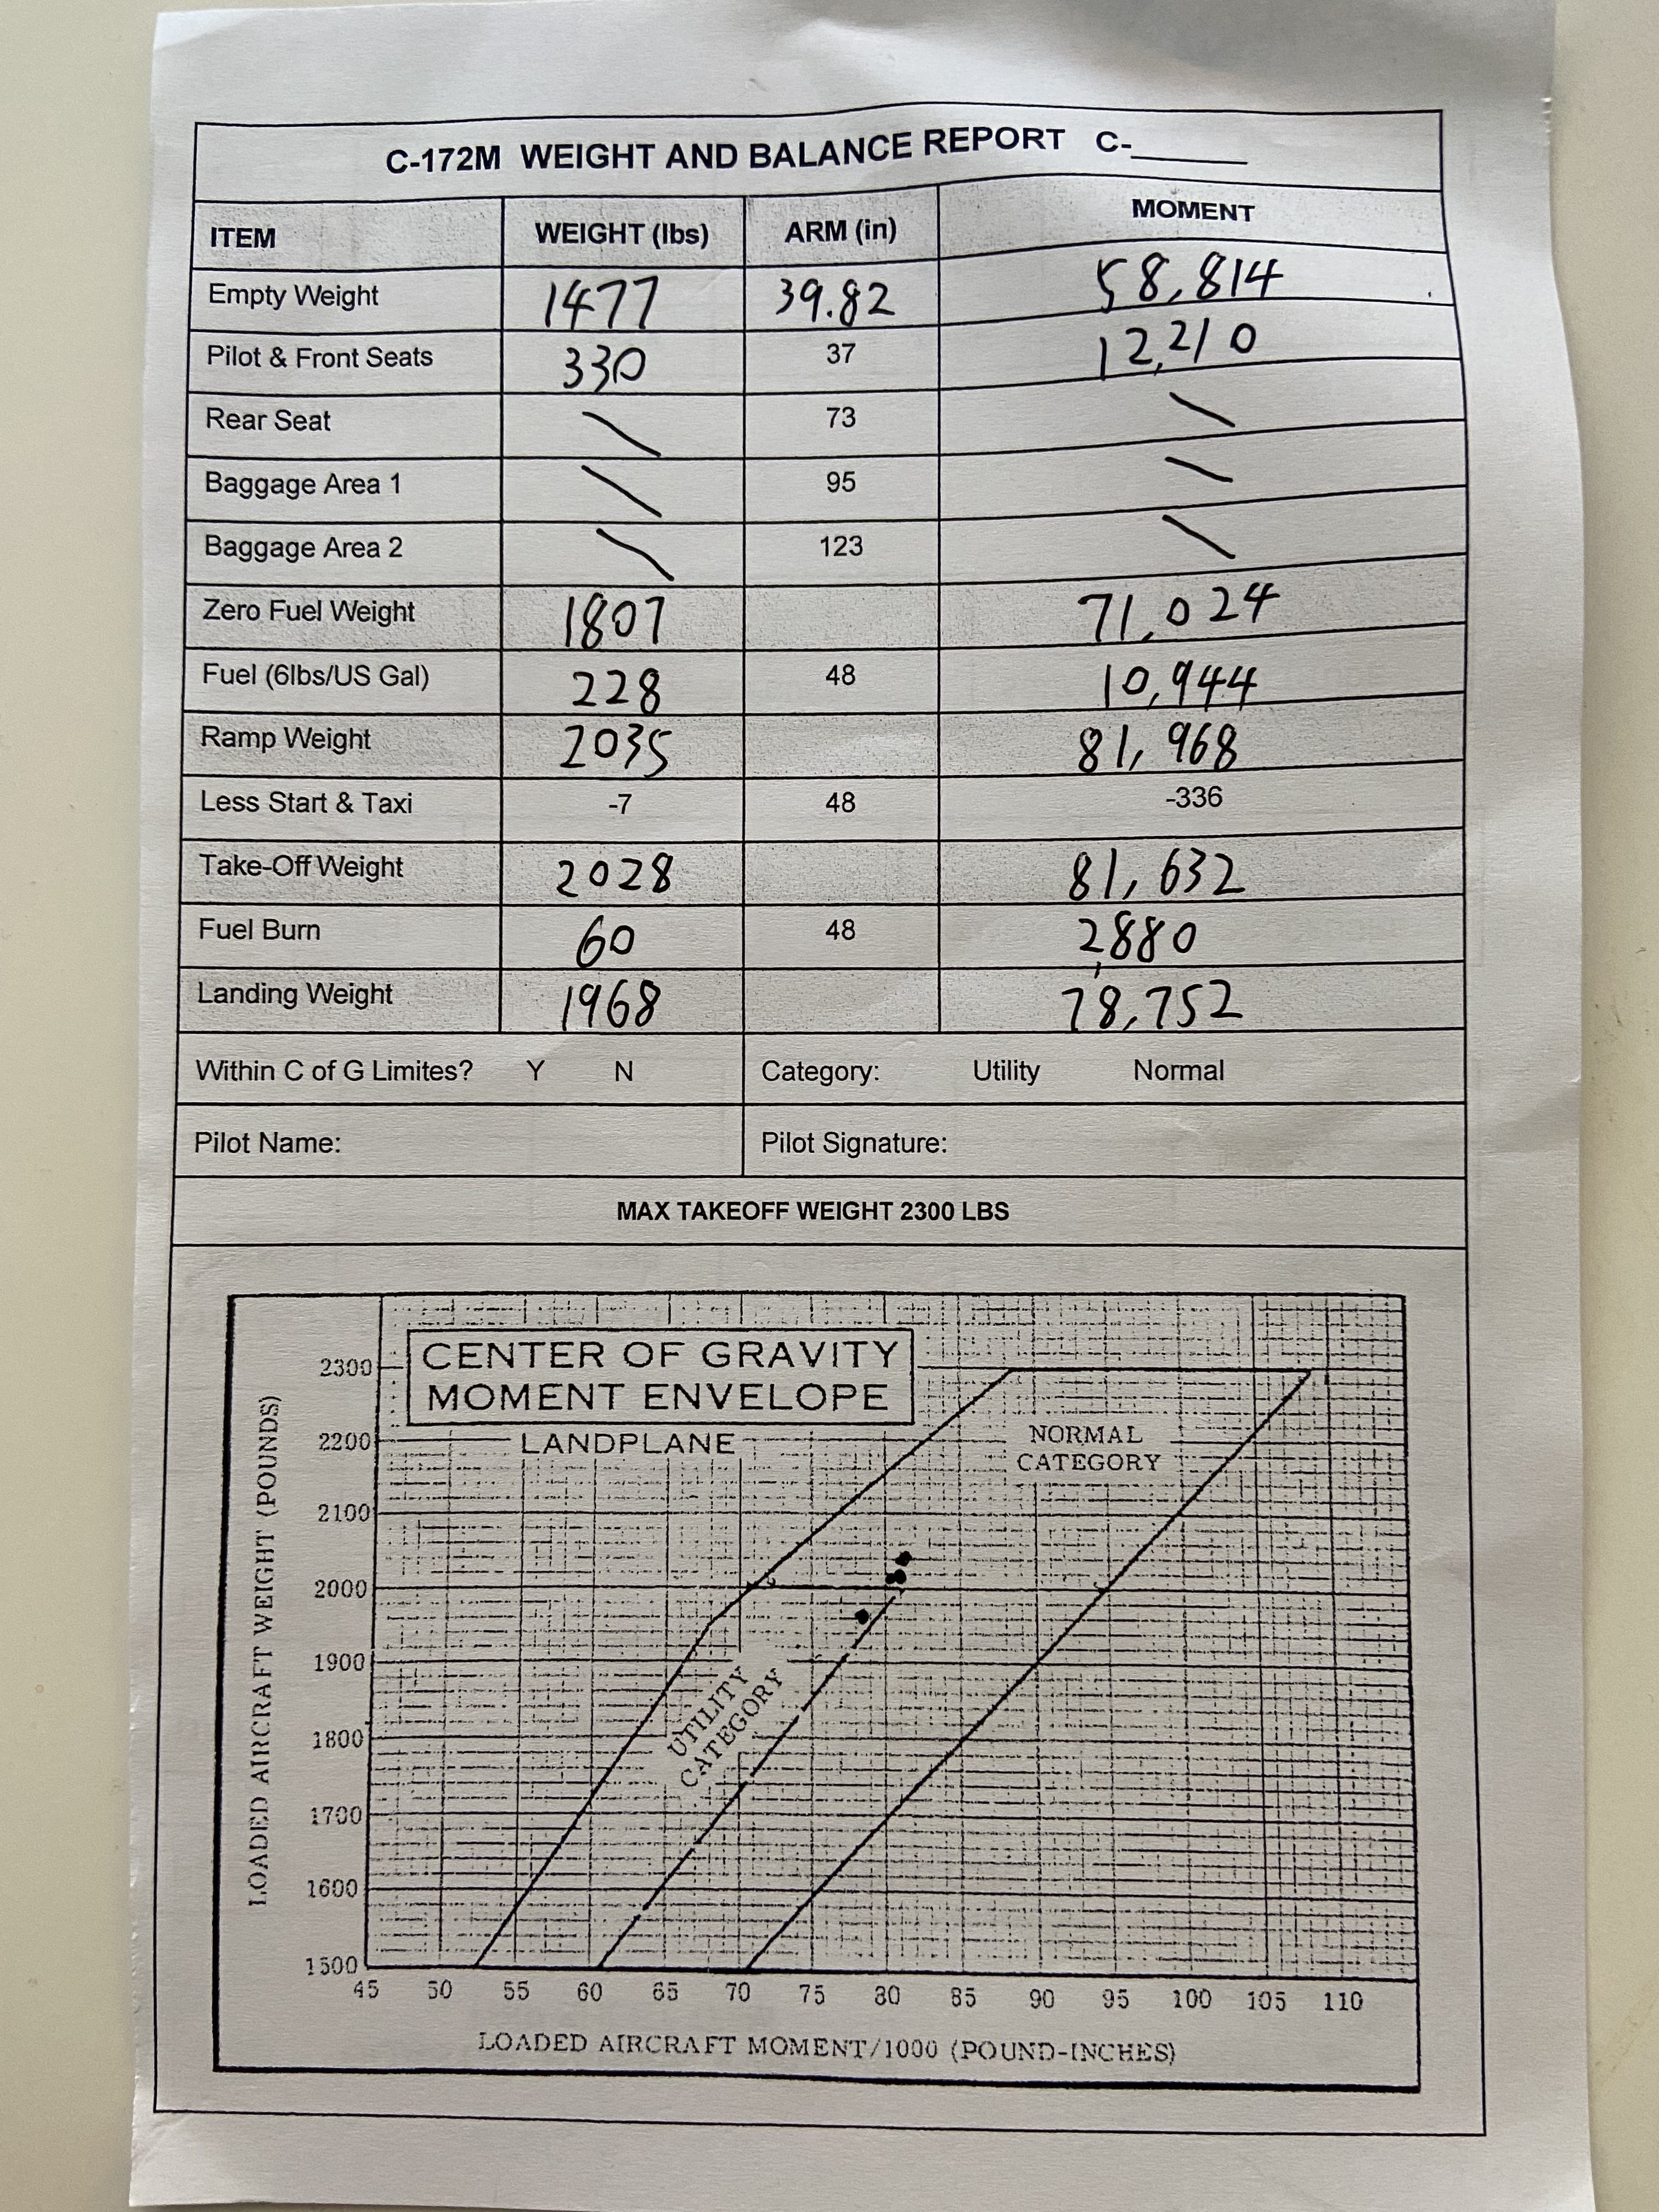 C-172M WEIGHT AND BALANCE REPORT C-______
ITEM WEIGHT (lbs) ARM (in) MOMENT
Empty Weight 1477 39.82 58,814
Pilot & Front Seats 330 37 12,210
Rear Seat 73
Baggage Area 1 95
Baggage Area 2 123
Zero Fuel Weight 1807 71,024
Fuel (6lbs/US Gal) 228 48 10,944
Ramp Weight 2035 81,968
Less Start & Taxi -7 48 -336
Take-Off Weight 2028 81,632
Fuel Burn 60 48 2,880
Landing Weight 1968 78,752
Within C of G Limites? Y N Category: Utility Normal
Pilot Name: Pilot Signature:
MAX TAKEOFF WEIGHT 2300 LBS
CENTER OF GRAVITY
MOMENT ENVELOPE
LANDPLANE
NORMAL
CATEGORY
UTILITY
CATEGORY
LOADED AIRCRAFT WEIGHT (POUNDS)
2300
2200
2100
2000
1900
1800
1700
1600
1500
45 50 55 60 65 70 75 80 85 90 95 100 105 110
LOADED AIRCRAFT MOMENT/1000 (POUND-INCHES)